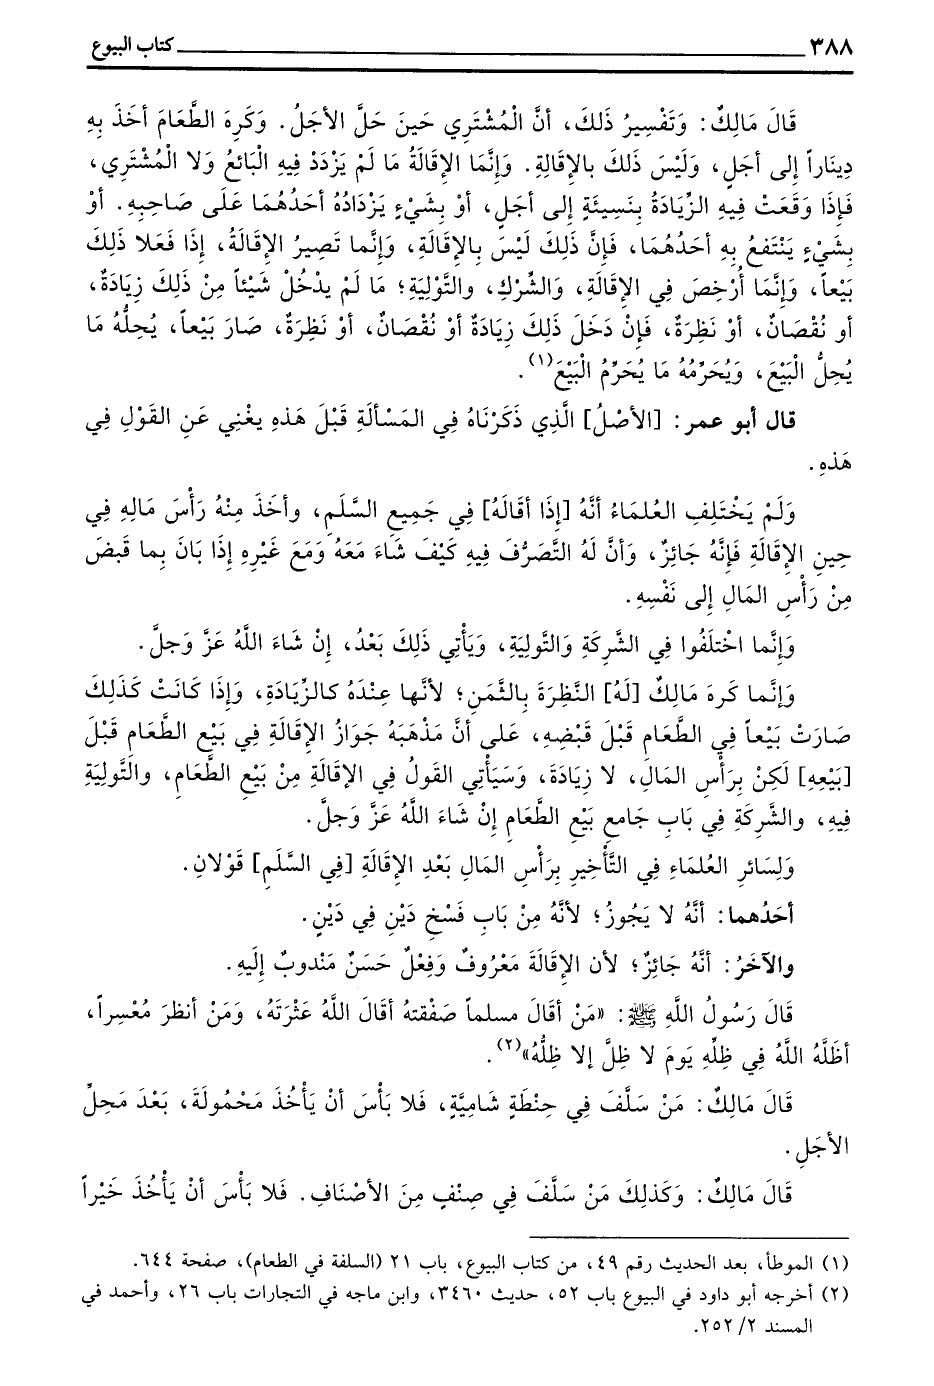 ٣٨٨ كتاب البيوع
قَالَ مَالِكٌ: وَتَفْسِيرُ ذَلكَ، أنَّ الْمُشْتَرِي حَينَ حَلَّ الأجَلُ. وَكَرِهَ الطَّعَامَ أخَذَ بِهِ
دِينَاراً إلى أجَلٍ، وَلَيْسَ ذَلكَ بالإقَالةِ. وَإنَّمَا الإقَالَةُ مَا لَمْ يَزْدَدْ فِيهِ الْبَائعُ وَلا الْمُشْتَرِي،
فَإذَا وَقَعَتْ فِيهِ الزِّيَادَةُ بِنَسِيئَةٍ إلى أجَلٍ، أوْ بِشَيْءٍ يَزْدَادُهُ أحَدُهُمَا عَلَى صَاحِبِهِ. أوْ
بِشَيْءٍ يَنْتَفعُ بِهِ أحَدُهُمَا، فَإنَّ ذَلِكَ لَيْسَ بِالإقَالَةِ، وَإنَّما تَصِيرُ الإقَالَةُ، إذَا فَعَلا ذَلِكَ
بَيْعاً، وَإنَّمَا أُرْخِصَ فِي الإقَالَةِ، وَالشِّرْكِ، والتَّوْلِيَةِ؛ مَا لَمْ يدْخُلْ شَيْئاً مِنْ ذَلِكَ زِيَادَةٌ،
أو نُقْصَانٌ، أوْ نَظِرَةٌ، فَإنْ دَخَلَ ذَلِكَ زِيَادَةٌ أوْ نُقْصَانٌ، أوْ نَظِرَةٌ، صَارَ بَيْعاً، يُحِلُّهُ مَا
يُحِلُّ الْبَيْعَ، وَيُحَرِّمُهُ مَا يُحَرِّمُ الْبَيْعَ(١).
قال أبو عمر: [الأصْلُ] الَّذِي ذَكَرْنَاهُ فِي المَسْألَةِ قَبْلَ هَذهِ يغْنِي عَنِ القَوْلِ فِي
هَذهِ.
وَلَمْ يَخْتَلِفِ العُلمَاءُ أنَّهُ [إذَا أقَالَهُ] فِي جَميعِ السَّلَمِ، وأخَذَ مِنْهُ رَأْسَ مَالِهِ فِي
حِينِ الإقَالَةِ فَإنَّهُ جَائِزٌ، وَأنَّ لَهُ التَّصَرُّفَ فِيهِ كَيْفَ شَاءَ مَعَهُ وَمَعَ غَيْرِهِ إذَا بَانَ بِما قَبضَ
مِنْ رَأْسِ المَالِ إلى نَفْسِهِ.
وَإنَّما اخْتَلَفُوا فِي الشَّركَةِ وَالتَّولِيَةِ، وَيَأْتِي ذَلِكَ بَعْدُ، إنْ شَاءَ اللَّهُ عَزَّ وَجلَّ.
وَإنَّما كَرهَ مَالِكٌ [لَهُ] النَّظِرَةَ بِالثَّمَنِ؛ لأنَّها عِنْدَهُ كالزِّيَادَةِ، وَإذَا كَانَتْ كَذَلِكَ
صَارَتْ بَيْعاً فِي الطَّعَامِ قَبْلَ قَبْضِهِ، عَلى أنَّ مَذْهَبَهُ جَوَازُ الإقَالَةِ فِي بَيْعِ الطَّعَامِ قَبْلَ
[بَيْعِهِ] لَكِنْ بِرَأْسِ المَالِ، لا زِيَادَةَ، وَسَيَأْتِي القَولُ فِي الإقَالَةِ مِنْ بَيْعِ الطَّعَامِ، والتَّولِيَةِ
فِيهِ، والشَّرِكَةِ فِي بَابِ جَامعِ بَيْعِ الطَّعَامِ إنْ شَاءَ اللَّهُ عَزَّ وَجلَّ.
وَلِسَائرِ العُلَمَاءِ فِي التَّأْخِيرِ بِرَأْسِ المَالِ بَعْدِ الإقَالَةِ [فِي السَّلَمِ] قَوْلانِ.
أحَدُهما: أنَّهُ لا يَجُوزُ؛ لأنَّهُ مِنْ بَابِ فَسْخِ دَيْنٍ فِي دَيْنٍ.
والآخَرُ: أنَّهُ جَائِزٌ؛ لأن الإقَالَةَ مَعْرُوفٌ وَفِعْلٌ حَسَنٌ مَنْدوبٌ إلَيهِ.
قَالَ رَسُولُ اللَّهِ ﷺ: «مَنْ أقَالَ مسلماً صَفْقتهُ أقَالَ اللَّهُ عَثْرَتَهُ، وَمَنْ أنظرَ مُعْسِراً،
أظَلَّهُ اللَّهُ فِي ظِلِّهِ يَومَ لا ظِلَّ إلا ظِلُّهُ»(٢).
قَالَ مَالِكٌ: مَنْ سَلَّفَ فِي حِنْطَةٍ شَامِيَّةٍ، فَلا بَأْسَ أنْ يَأْخُذَ مَحْمُولَةً، بَعْدَ مَحِلِّ
الأجَلِ.
قَالَ مَالِكٌ: وَكَذلِكَ مَنْ سَلَّفَ فِي صِنْفٍ مِنَ الأصْنَافِ. فَلا بَأْسَ أنْ يَأْخُذَ خَيْراً
(١) الموطأ، بعد الحديث رقم ٤٩، من كتاب البيوع، باب ٢١ (السلفة في الطعام)، صفحة ٦٤٤.
(٢) أخرجه أبو داود في البيوع باب ٥٢، حديث ٣٤٦٠، وابن ماجه في التجارات باب ٢٦، وأحمد في
المسند ٢/ ٢٥٢.